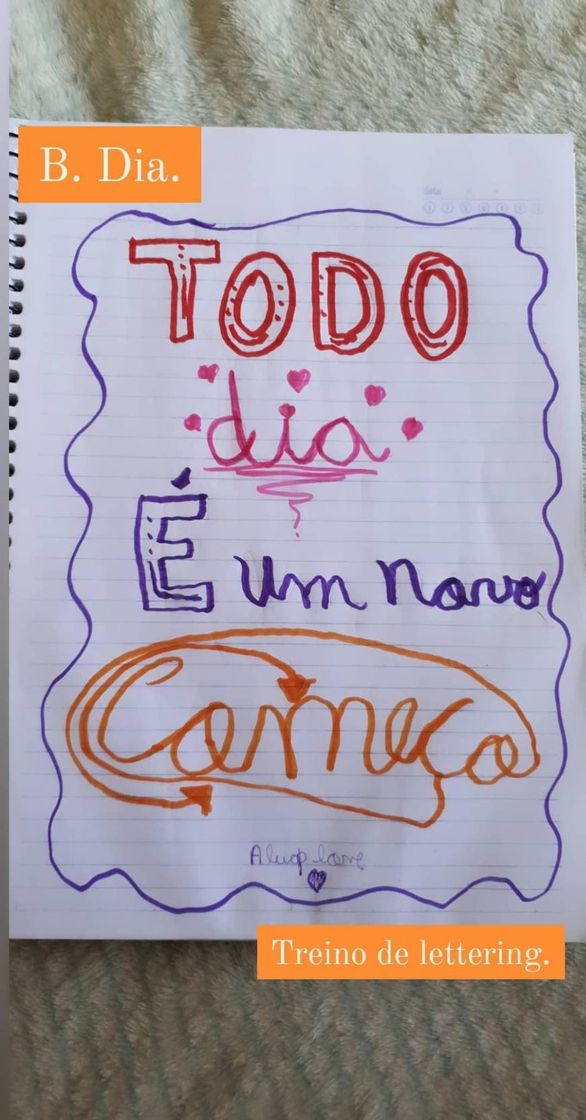 B. Dia.
data
TODO
dia
É um novo
Começo
Treino de lettering.